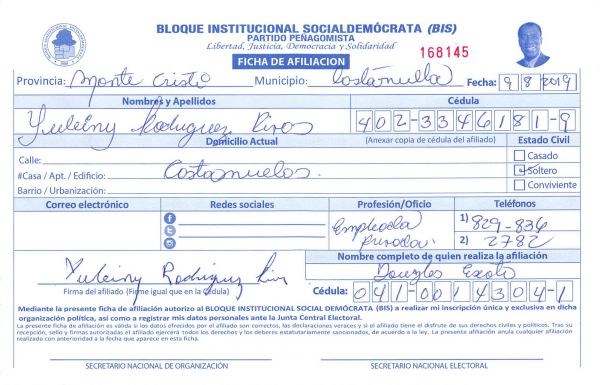 BLOQUE INSTITUCIONAL SOCIALDEMÓCRATA (BIS)
PARTIDO PEÑAGOMISTA
Libertad, Justicia, Democracia y Solidaridad
168145
FICHA DE AFILIACION
Provincia: Monte Cristi Municipio: Fecha: 9 8 2019
Nombres y Apellidos Cédula
Yuleiny Rodriguez Rivas 402-3346181-9
Domicilio Actual (Anexar copia de cédula del afiliado) Estado Civil
Calle: Casado
#Casa / Apt. / Edificio: Costa Soltero
Barrio / Urbanización: Conviviente
Correo electrónico Redes sociales Profesión/Oficio Teléfonos
Empleada 1) 829-836
Privada. 2) 2782
Nombre completo de quien realiza la afiliación
Yuleiny Rodriguez Douglas
Firma del afiliado (Firme igual que en la Cédula) Cédula: 041-0014304-1
Mediante la presente ficha de afiliación autorizo al BLOQUE INSTITUCIONAL SOCIAL DEMÓCRATA (BIS) a realizar mi inscripción única y exclusiva en dicha
organización política, así como a registrar mis datos personales ante la Junta Central Electoral.
La presente ficha de afiliación es válida si los datos ofrecidos por el afiliado son correctos, las declaraciones veraces y si el afiliado tiene el disfrute de sus derechos civiles y políticos. Tras su
recepción, sello y firmas autorizadas el afiliado ejercerá todos los derechos y los deberes estatutariamente sancionados, de acuerdo a la ley. La presente afiliación anula cualquier afiliación
realizada con anterioridad a la fecha que aparece en esta ficha.
SECRETARIO NACIONAL DE ORGANIZACIÓN SECRETARIO NACIONAL ELECTORAL